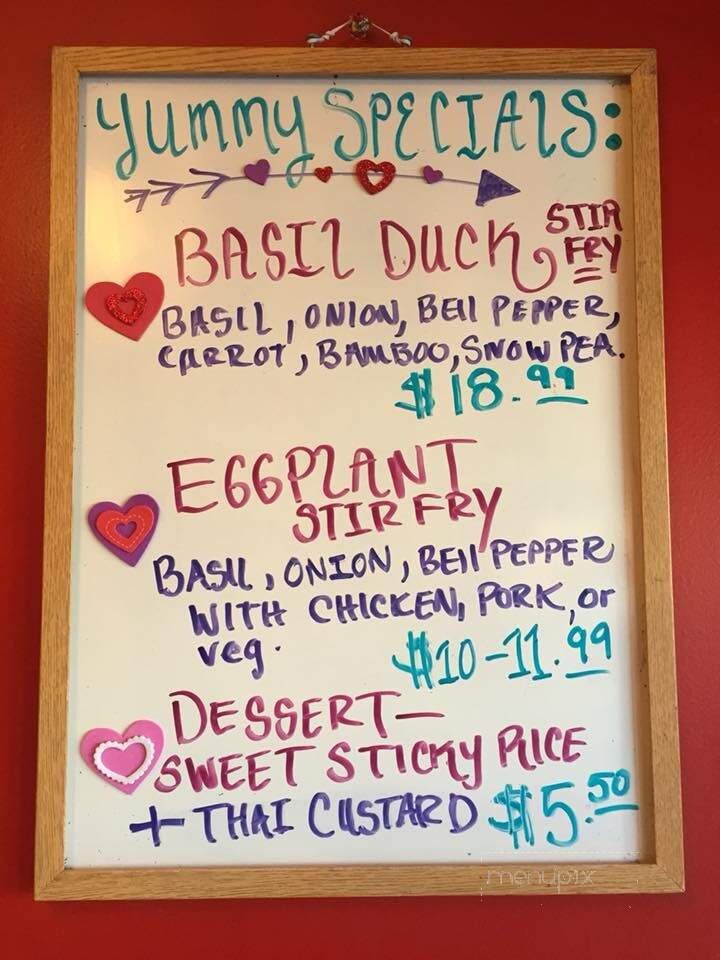 Yummy SPECIALS:
BASIL DUCK STIR FRY
BASIL, ONION, BELL PEPPER,
CARROT, BAMBOO, SNOW PEA.
$18.99
EGGPLANT
STIR FRY
BASIL, ONION, BELL PEPPER
WITH CHICKEN, PORK, or
veg.
$10-11.99
DESSERT-
SWEET STICKY RICE
+ THAI CUSTARD $5.50
menupix